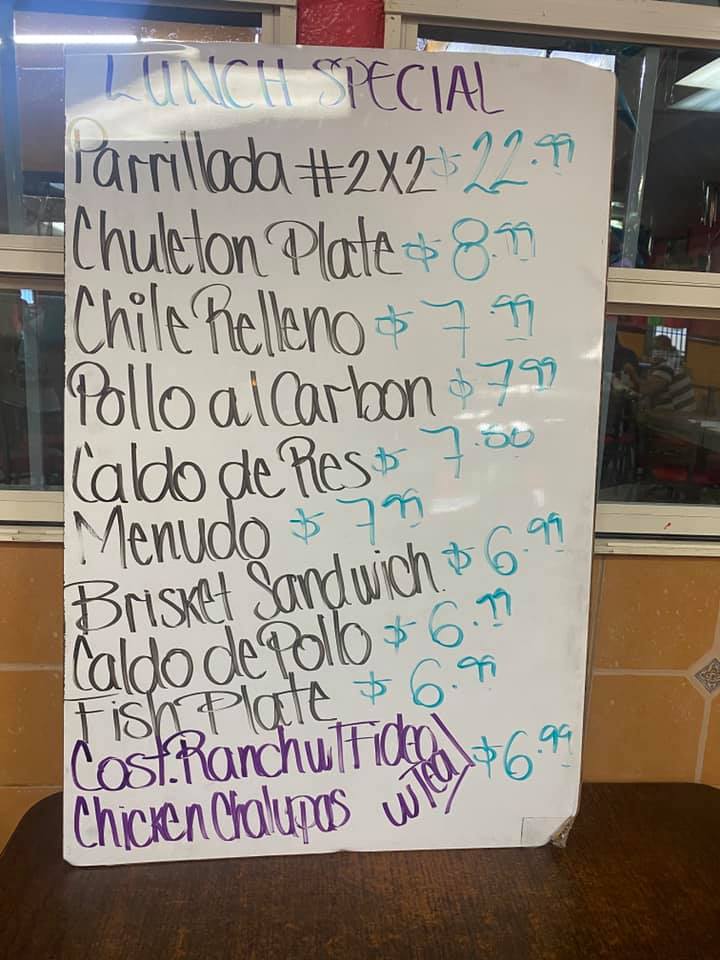 LUNCH SPECIAL
Parrillada #2X2 $22.99
Chuleton Plate $8.99
Chile Relleno $7.99
Pollo al Carbon $7.99
Caldo de Res $7.50
Menudo $7.99
Brisket Sandwich $6.99
Caldo de Pollo $6.99
Fish Plate $6.99
Cost. Ranch w/ Fideo
Chicken Chalupas w Tea $6.99